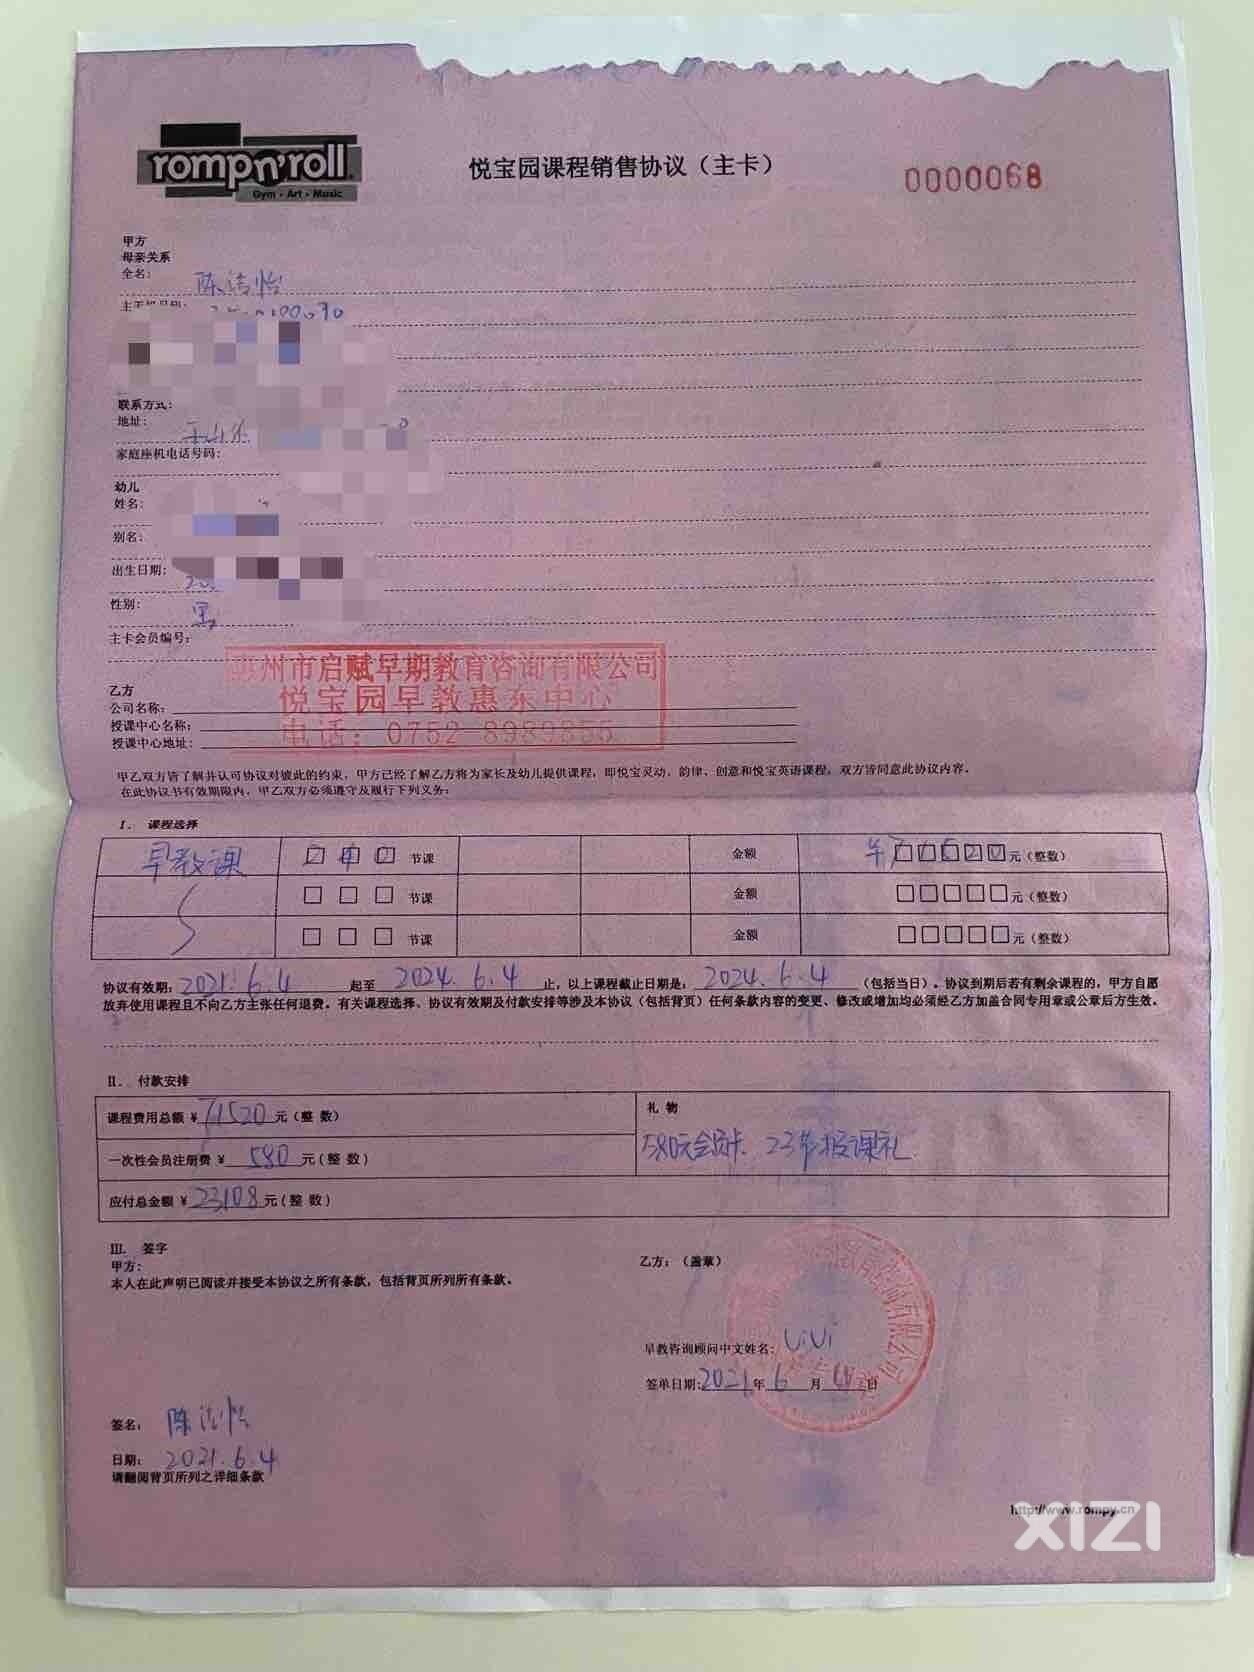 rompn'roll
Gym · Art · Music
悦宝园课程销售协议（主卡）
0000068
甲方
母亲关系
全名：
陈洁怡
联系方式：
地址：
家庭座机电话号码：
幼儿
姓名：
别名：
出生日期：
性别：男
主卡会员编号：
惠州市启赋早期教育咨询有限公司
悦宝园早教惠东中心
电话：0752-8989855
乙方
公司名称：
授课中心名称：
授课中心地址：
甲乙双方皆了解并认可协议对彼此的约束，甲方已经了解乙方将为家长及幼儿提供课程，即悦宝灵动、韵律、创意和悦宝英语课程，双方皆同意此协议内容。
在此协议书有效期限内，甲乙双方必须遵守及履行下列义务：
I. 课程选择
早教课 240 节课 金额 元（整数）
节课 金额 元（整数）
节课 金额 元（整数）
协议有效期：2021.6.4 起至 2024.6.4 止，以上课程截止日期是：2024.6.4（包括当日）。协议到期后若有剩余课程的，甲方自愿
放弃使用课程且不向乙方主张任何退费。有关课程选择、协议有效期及付款安排等涉及本协议（包括背页）任何条款内容的变更、修改或增加均必须经乙方加盖合同专用章或公章后方生效。
II. 付款安排
课程费用总额 ¥71520元（整 数）
礼 物
580元会员卡、23节授课礼
一次性会员注册费 ¥ 580 元（整 数）
应付总金额 ¥23108元（整 数）
III. 签字
甲方：
本人在此声明已阅读并接受本协议之所有条款，包括背页所列所有条款。
乙方：（盖章）
早教咨询顾问中文姓名：ViVi
签单日期：2021年6月 日
签名：陈洁怡
日期：2021.6.4
请翻阅背页所列之详细条款
http://www.rompy.cn
XIZI